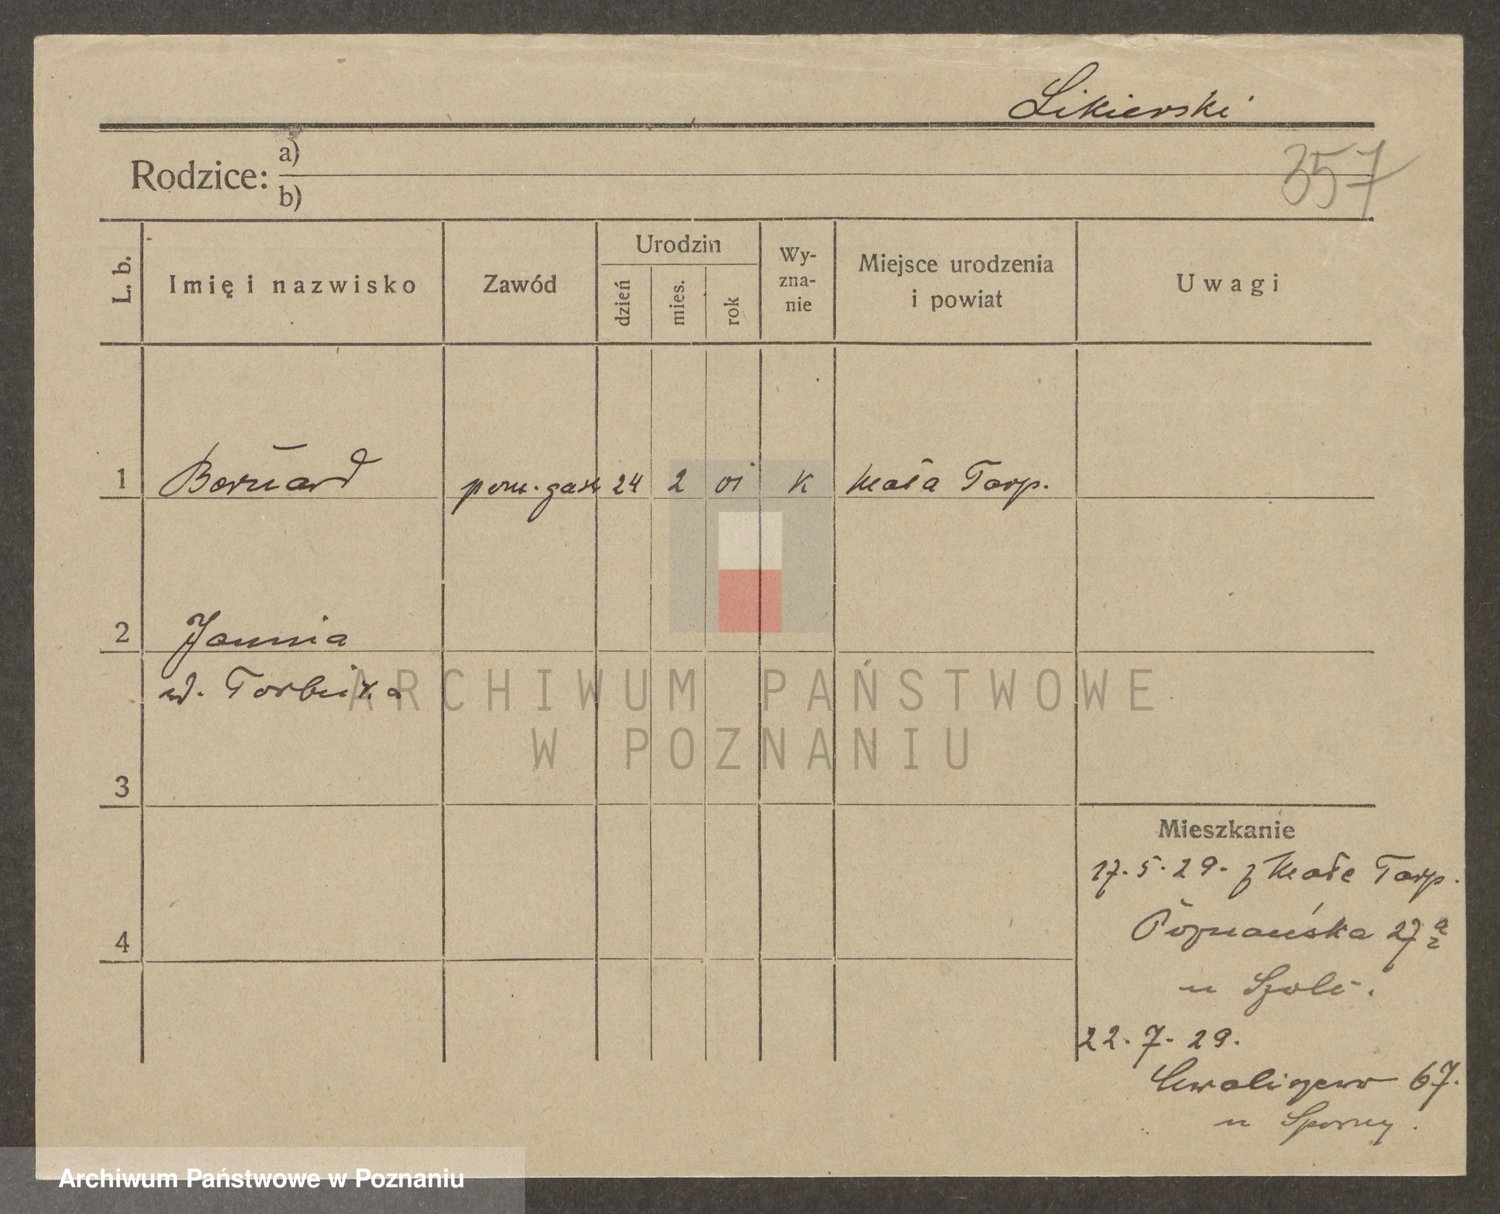 Likierski
357
Rodzice: a)
b)
L. b.
Imię i nazwisko
Zawód
Urodzin
dzień
mies.
rok
Wy-
zna-
nie
Miejsce urodzenia
i powiat
Uwagi
1 Bernard pom. gast 24 2 01 K Mała Tarp.
2 Janina
3
4
Mieszkanie
17. 5. 29. z Małe Tarp.
Poznańska 27
22. 7. 29.
67.
ARCHIWUM PAŃSTWOWE
W POZNANIU
Archiwum Państwowe w Poznaniu